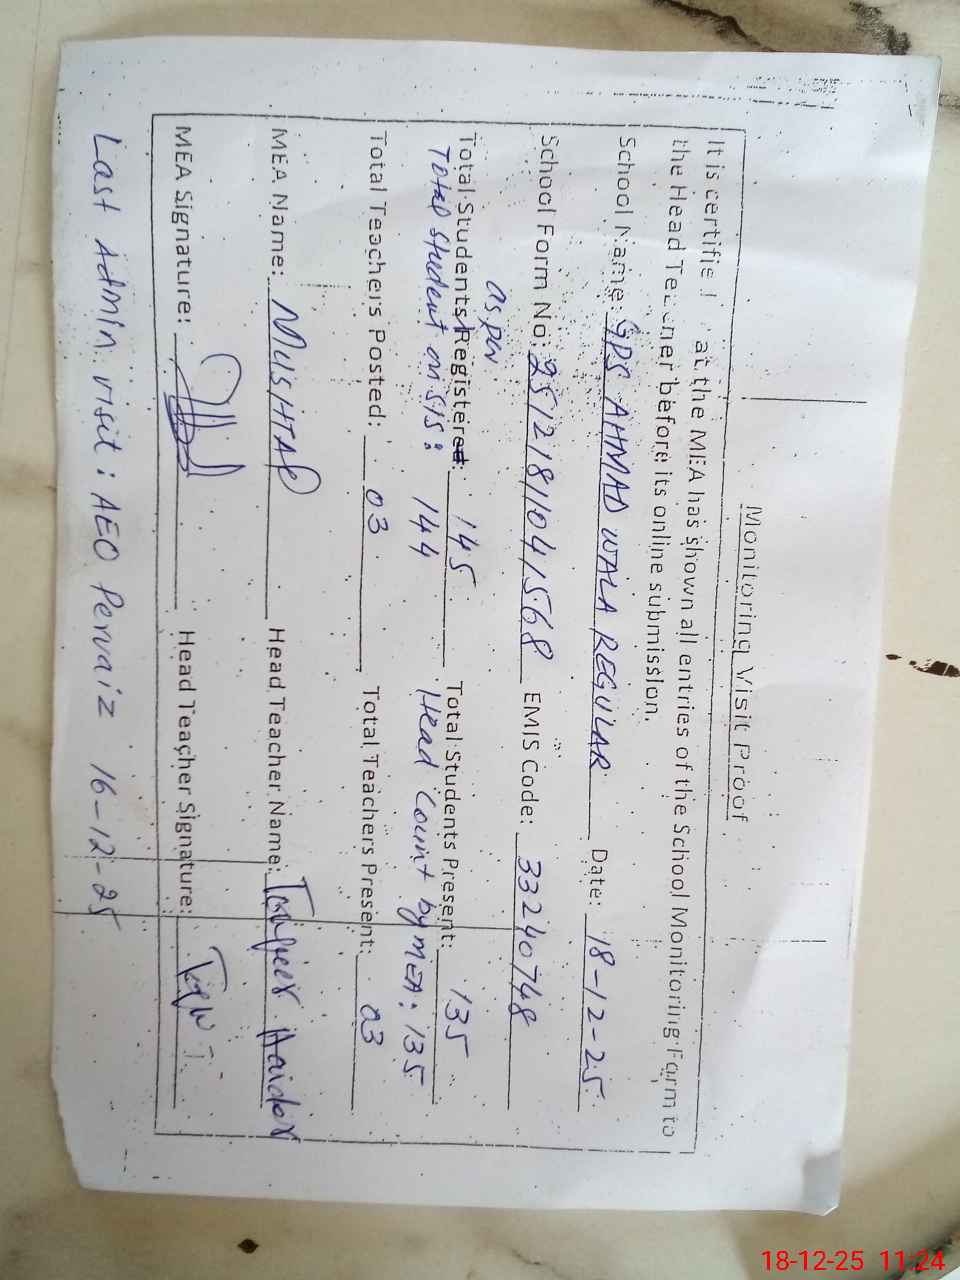 Monitoring Visit Proof
It is certified at the MEA has shown all entries of the School Monitoring Form to
the Head Teacher before its online submission.
School Name GPS AHMAD WALA REGULAR Date: 18-12-25
School Form No: 251218/104/568 EMIS Code: 33240748
as per
Total Students Registered: 145 Total Students Present: 135
Total Student on SIS: 144 Head Count by MEA: 135
Total Teachers Posted: 03 Total Teachers Present: 03
MEA Name: MUSHTAQ Head Teacher Name: Haider
MEA Signature: Head Teacher Signature:
Last Admin visit: AEO Pervaiz 16-12-25
18-12-25 11:24